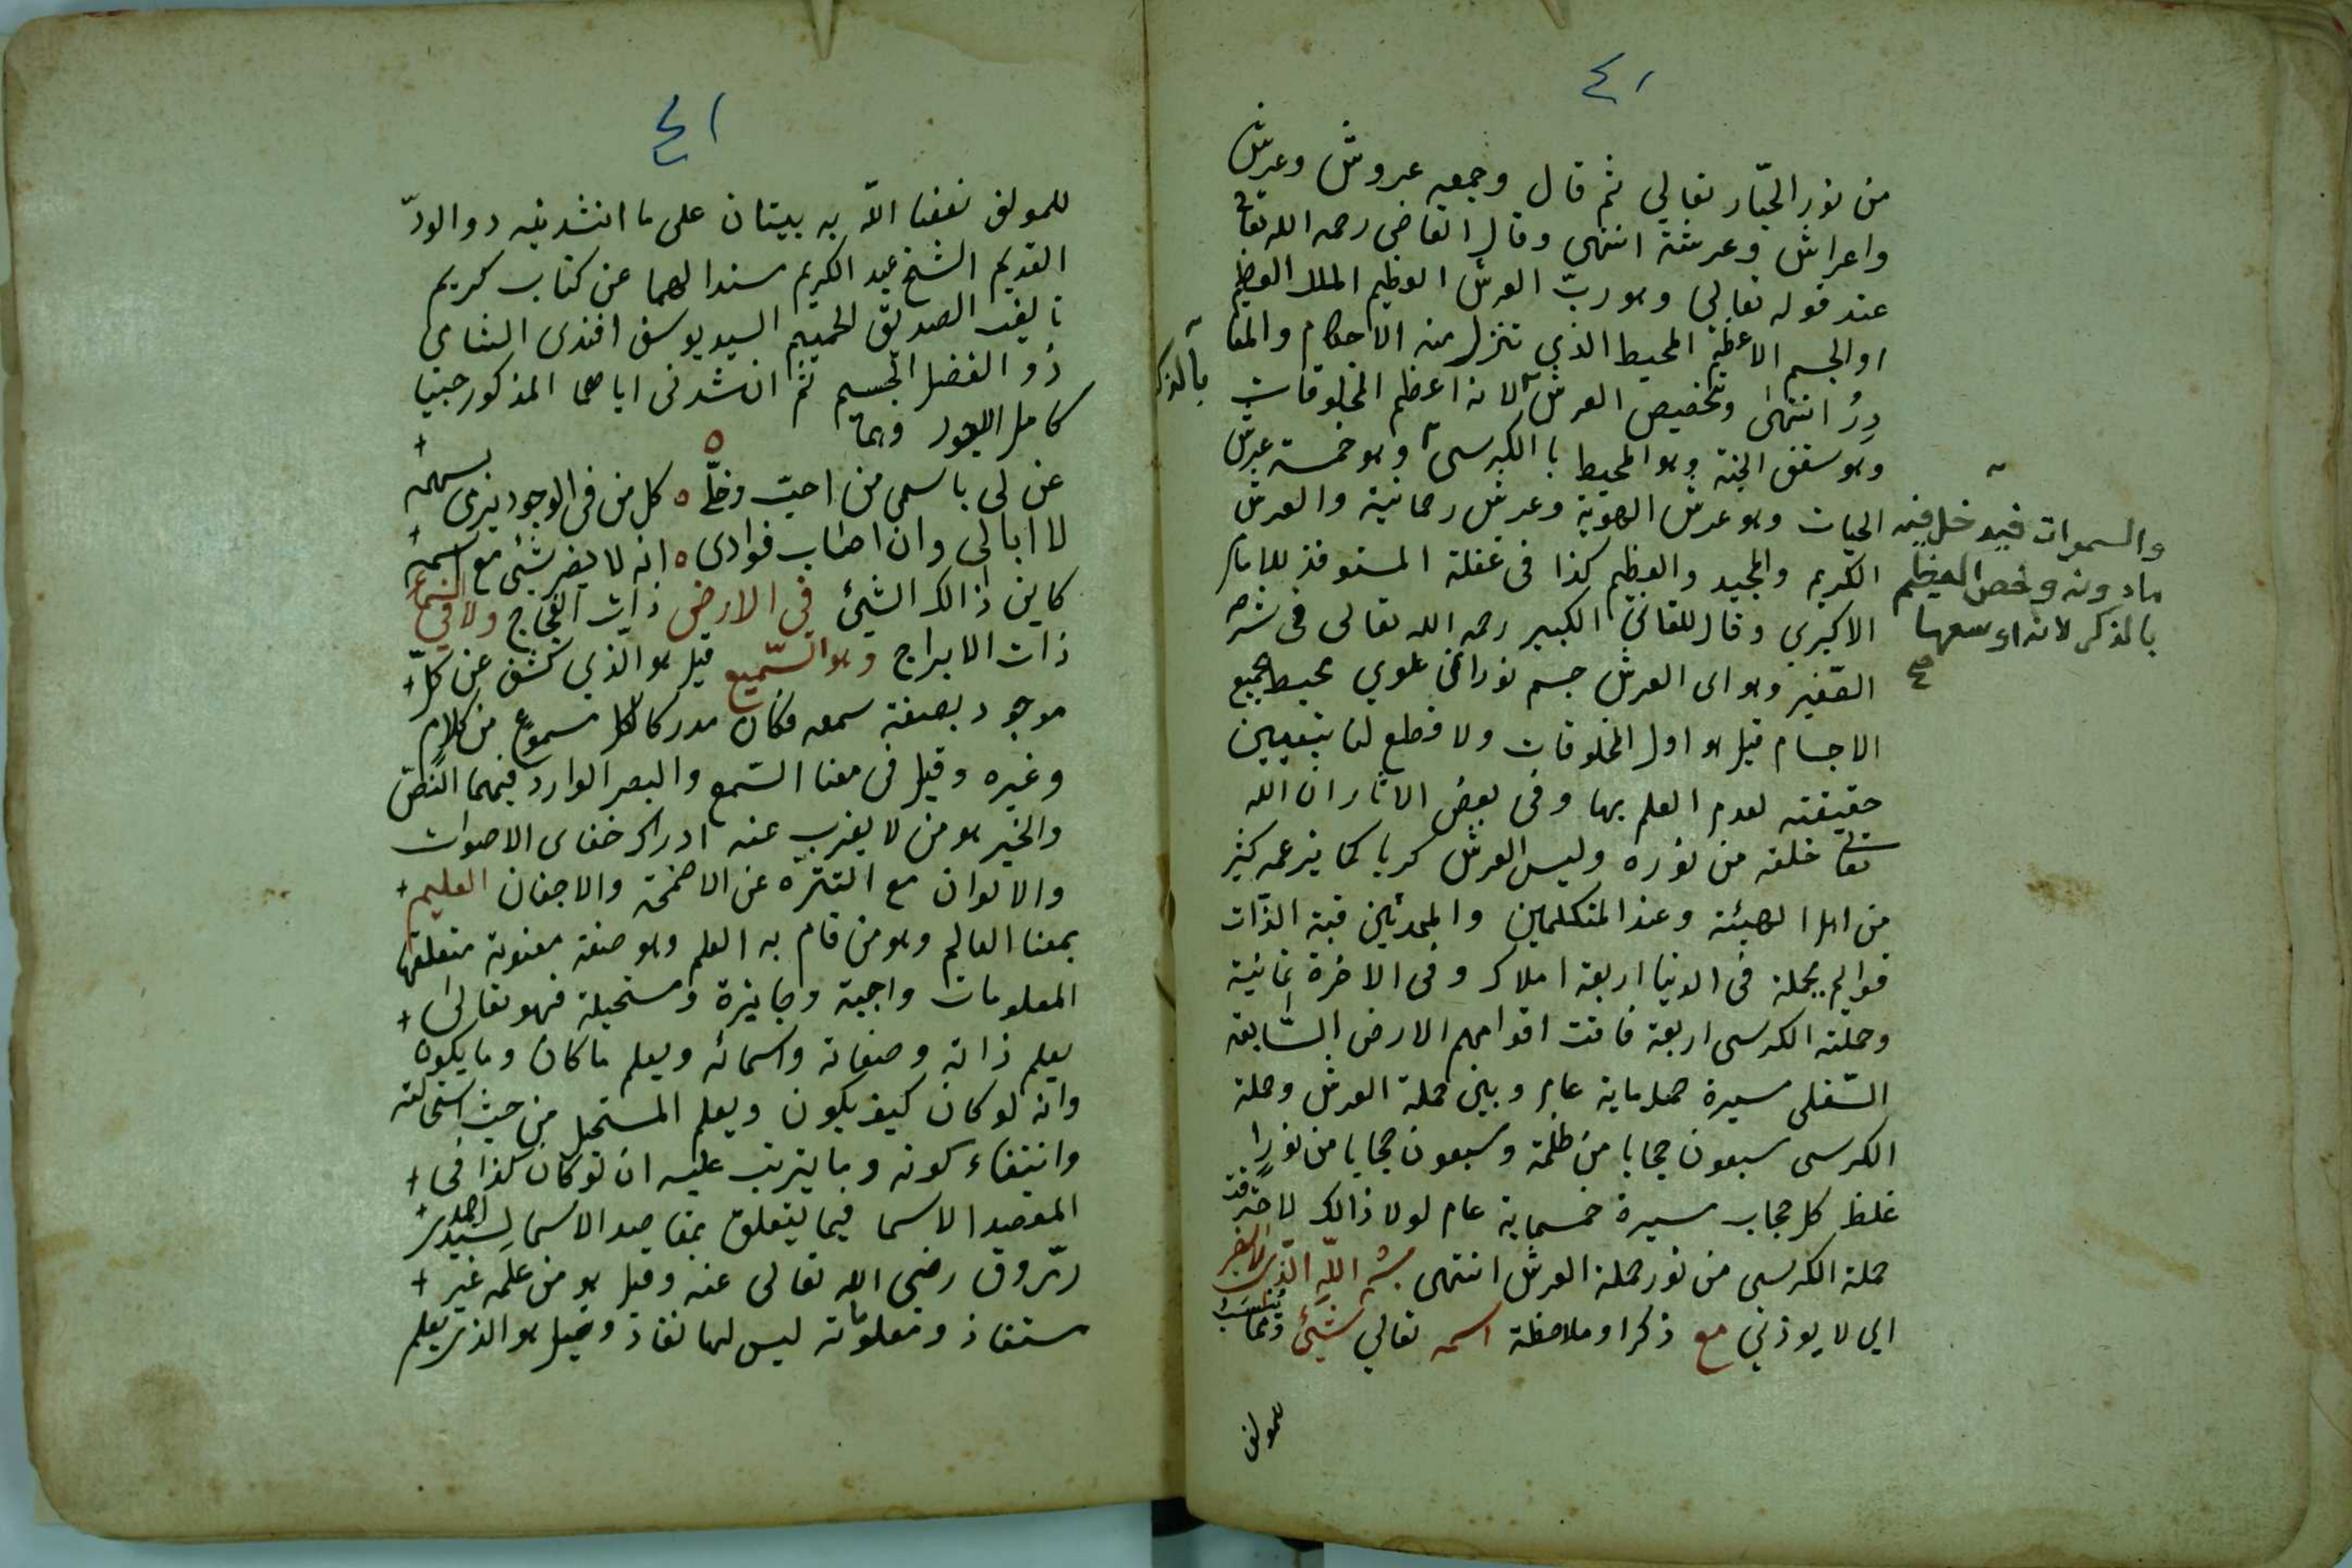 ٤١
من نور الجبّار تعالي ثم قال وجمعه عروش وعرش
واعراش وعرشة انتهى وقال القاضى رحمه الله تعالى
عند قوله تعالى وهو ربّ العرش العظيم الملك العظيم
او الجسم الاعظم المحيط الذي تنزل منه الاحكام والمقا
دِرُ انتهىٰ وتخصيص العرش لانه اعظم المخلوقات
بالذكر
وهو سقف الجنة وهو المحيط با الكرسى وهو خمسة عرش
الحيات وهو عرش الهوية وعرش رحمانية والعرش
الكريم والمجيد والعظيم كذا فى عقلة المستوفز للامام
الاكبري وقال اللقاني الكبير رحمه الله تعالى فى شرحه
الصّغير وهو اى العرش جسم نوراني علوي محيط بجميع
الاجسام قيل هو اول المخلوقات ولا قطع لنا بتعيين
حقيقته لعدم العلم بها وفى بعض الاثار ان الله
تعالى خلقه من نوره وليس العرش كريا كما يزعمه كثير
من اهل الهيئة وعند المتكلمين والمحدثين قبة الذّات
قوايم يحمله فى الدنيا اربعة املاك وفى الاخرة ثمانية
وحملة الكرسى اربعة فاتت اقدامهم الارض السّابعة
السّفلى مسيرة خمسماية عام وبين حملة العرش وحملة
الكرسى سبعون حجابا من ظلمة وسبعون حجابا من نور
غلظ كل حجاب مسيرة خمسماية عام لولا ذالك لاحترقت
حملة الكرسى من نور حملة العرش انتهى بسم اللّه الّذى لا يضر
اي لا يوذني مع ذكر او ملاحظة اسمه تعالي شيئ ومما يناسب
للمولف
والسموات فيدخل فيه
مادونه وخص العظيم
بالذكر لانه اوسعها
صح
٤١
للمولف نفعنا الله به بيتان على ما انشدنيه ذو الودّ
القديم الشيخ عبد الكريم مسندا لهما عن كتاب كريم
تاليف الصديق الحميم السيد يوسف افندى الشامى
ذو الفضل الجسيم ثم انشدنى اياهما المذكور حبيبنا
كامل الجود وهما
عن لى باسمى من احبّ وخلّي ه كل من فى الوجود يرمى بسهمه
لا ابالى وان اصاب فوادى ه انه لا يضر شئ مع اسمه
كاين ذالك الشيئ في الارض ذات الفجاج ولا في السماء
ذات الابراج وهو السّميع قيل هو الّذي كشف عن كلّ
موجود بصفة سمعه فكان مدركا لكل مسموع من كلام
وغيره وقيل فى معنا السّمع والبصر الوارد فيهما النّصّ
والخبر هو من لا يعزب عنه ادراك خفاى الاصوات
والالوان مع التنزّه عن الاصمخة والاجفان العليم
بمعنا العالم وهو من قام به العلم وهو صفة معنوية متعلقها
المعلومات واجبة وجايزة ومستحيلة فهو تعالى
يعلم ذاته وصفاته واسمائه ويعلم ما كان وما يكون
وانه لو كان كيف يكون ويعلم المستحيل من حيث استحالته
وانتفاء كونه وما يترتب عليه ان لو كان كذا فى
المقصد الاسما فيما يتعلق بمقاصد الاسما لسيدى احمد
زرّوق رضى الله تعالى عنه وقيل هو من علمه غير
مستفاد ومعلوماته ليس لها نفاد وقيل هو الذى يعلم